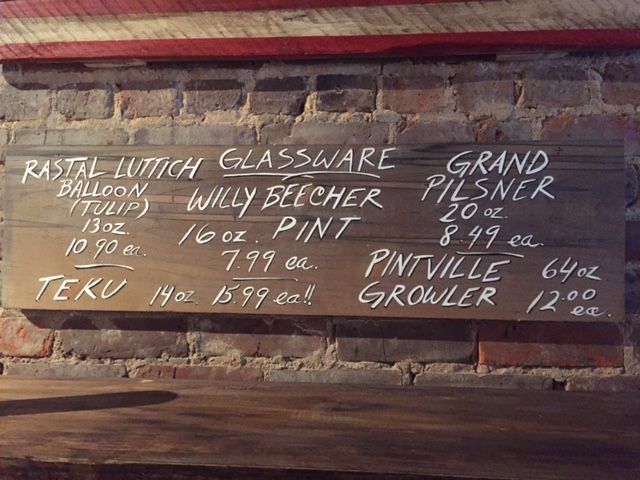 GLASSWARE
RASTAL LUTTICH
BALLOON
(TULIP)
13oz.
10.90 ea.
WILLY BEECHER
16 oz. PINT
7.99 ea.
GRAND
PILSNER
20 oz.
8.49 ea.
TEKU 14oz 15.99 ea!!
PINTVILLE 64oz
GROWLER 12.00 ea.